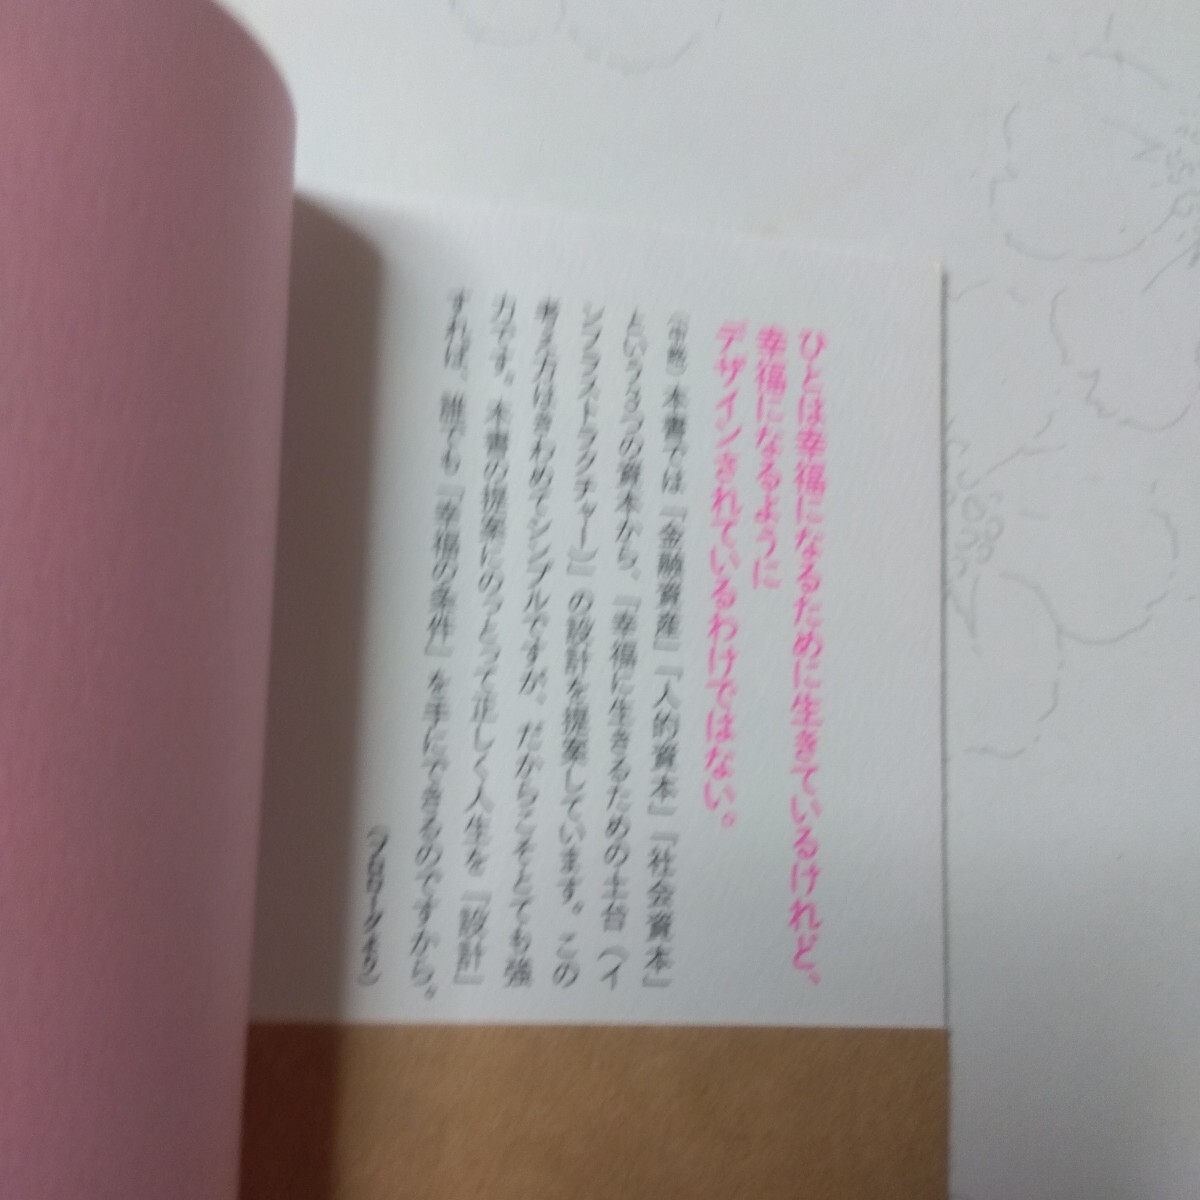 ひとは幸福になるために生きているけれど、
幸福になるように
デザインされているわけではない。
（中略）本書では『金融資産』『人的資本』『社会資本』
という3つの資本から、『幸福に生きるための土台（イ
ンフラストラクチャー）』の設計を提案しています。この
考え方はきわめてシンプルですが、だからこそとても強
力です。本書の提案にのっとって正しく人生を『設計』
すれば、誰でも『幸福の条件』を手にできるのですから。
（プロローグより）